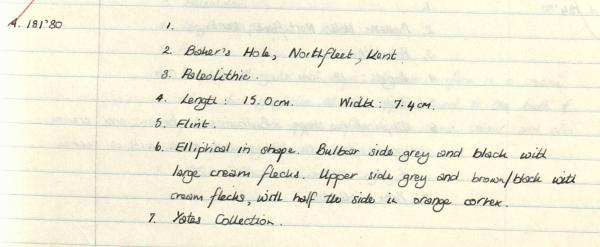 A. 181'80
1.
2. Baker's Hole, Northfleet, Kent.
3. Paleolithic.
4. Length: 15.0cm. Width: 7.4cm.
5. Flint.
6. Elliptical in shape. Bulbar side grey and black with
large cream flecks. Upper side grey and brown/black with
cream flecks, with half the side in orange cortex.
7. Yates Collection.